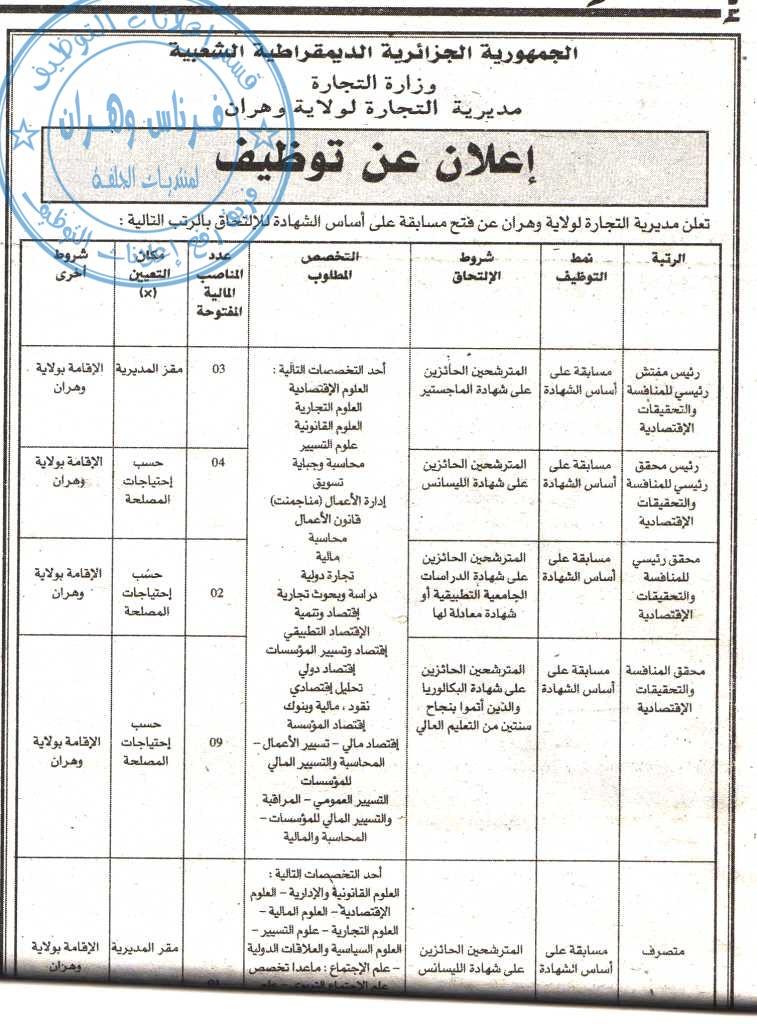 الجمهورية الجزائرية الديمقراطية الشعبية
وزارة التجارة
مديرية التجارة لولاية وهران
إعلان عن توظيف
قسم إعلانات التوظيف
فرناس وهران
لمنتديات الجلفة
فريق رفع إعلانات التوظيف
تعلن مديرية التجارة لولاية وهران عن فتح مسابقة على أساس الشهادة للإلتحاق بالرتب التالية :
الرتبة
نمط
التوظيف
شروط
الإلتحاق
التخصص
المطلوب
عدد
المناصب
المالية
المفتوحة
مكان
التعيين
(x)
شروط
أخرى
رئيس مفتش
رئيسي للمنافسة
والتحقيقات
الإقتصادية
مسابقة على
أساس الشهادة
المترشحين الحائزين
على شهادة الماجستير
أحد التخصصات التالية :
العلوم الإقتصادية
العلوم التجارية
العلوم القانونية
علوم التسيير
محاسبة وجباية
تسويق
إدارة الأعمال (مناجمنت)
قانون الأعمال
محاسبة
مالية
تجارة دولية
دراسة وبحوث تجارية
إقتصاد وتنمية
الإقتصاد التطبيقي
إقتصاد وتسيير المؤسسات
إقتصاد دولي
تحليل إقتصادي
نقود ، مالية وبنوك
إقتصاد المؤسسة
إقتصاد مالي – تسيير الأعمال –
المحاسبة والتسيير المالي
للمؤسسات
التسيير العمومي – المراقبة
والتسيير المالي للمؤسسات –
المحاسبة والمالية
03
مقر المديرية
الإقامة بولاية
وهران
رئيس محقق
رئيسي للمنافسة
والتحقيقات
الإقتصادية
مسابقة على
أساس الشهادة
المترشحين الحائزين
على شهادة الليسانس
04
حسب
إحتياجات
المصلحة
الإقامة بولاية
وهران
محقق رئيسي
للمنافسة
والتحقيقات
الإقتصادية
مسابقة على
أساس الشهادة
المترشحين الحائزين
على شهادة الدراسات
الجامعية التطبيقية أو
شهادة معادلة لها
02
حسب
إحتياجات
المصلحة
الإقامة بولاية
وهران
محقق المنافسة
والتحقيقات
الإقتصادية
مسابقة على
أساس الشهادة
المترشحين الحائزين
على شهادة البكالوريا
والذين أتموا بنجاح
سنتين من التعليم العالي
09
حسب
إحتياجات
المصلحة
الإقامة بولاية
وهران
متصرف
مسابقة على
أساس الشهادة
المترشحين الحائزين
على شهادة الليسانس
أحد التخصصات التالية :
العلوم القانونية والإدارية – العلوم
الإقتصادية – العلوم المالية –
العلوم التجارية – علوم التسيير –
العلوم السياسية والعلاقات الدولية
– علم الإجتماع : ماعدا تخصص
مقر المديرية
الإقامة بولاية
وهران